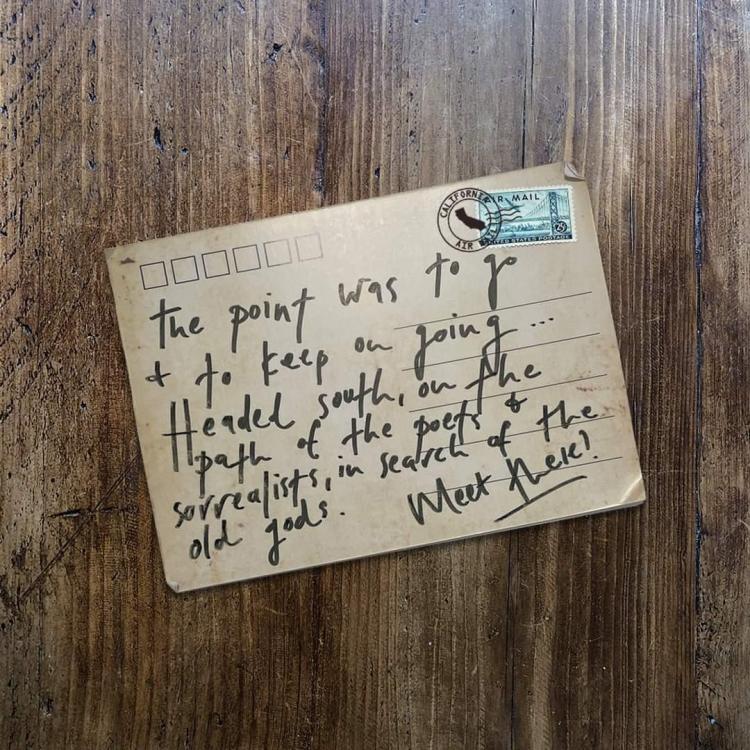 CALIFORNIA
AIR
AIR MAIL
25¢
UNITED STATES POSTAGE
the point was to go
+ to keep on going ...
Headed south, on the
path of the poets &
sorrealists, in search of the
old gods. Meet there!